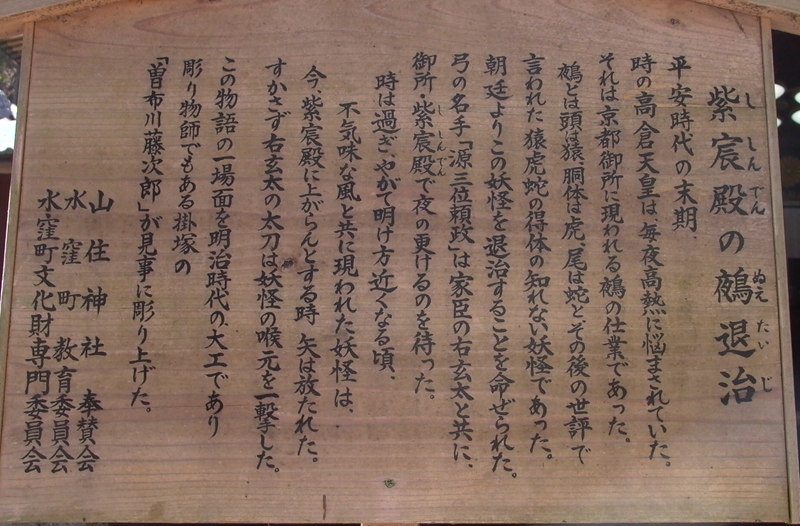 紫宸殿の鵺退治
しんでん ぬえたいじ
平安時代の末期、
時の高倉天皇は、毎夜高熱に悩まされていた。
それは京都御所に現われる鵺の仕業であった。
鵺とは頭は猿、胴体は虎、尾は蛇とその後の世評で
言われた猿虎蛇の得体の知れない妖怪であった。
朝廷よりこの妖怪を退治することを命ぜられた。
弓の名手「源三位頼政」は家臣の右玄太と共に、
御所・紫宸殿で夜の更けるのを待った。
ししんでん
時は過ぎ、やがて明け方近くなる頃、
不気味な風と共に現われた妖怪は、
今、紫宸殿に上がらんとする時 矢は放たれた。
すかさず右玄太の太刀は妖怪の喉元を一撃した。
この物語の一場面を明治時代の大工であり
彫り物師でもある掛塚の
「曽布川藤次郎」が見事に彫り上げた。
山住神社 奉賛会
水窪町教育委員会
水窪町文化財専門委員会